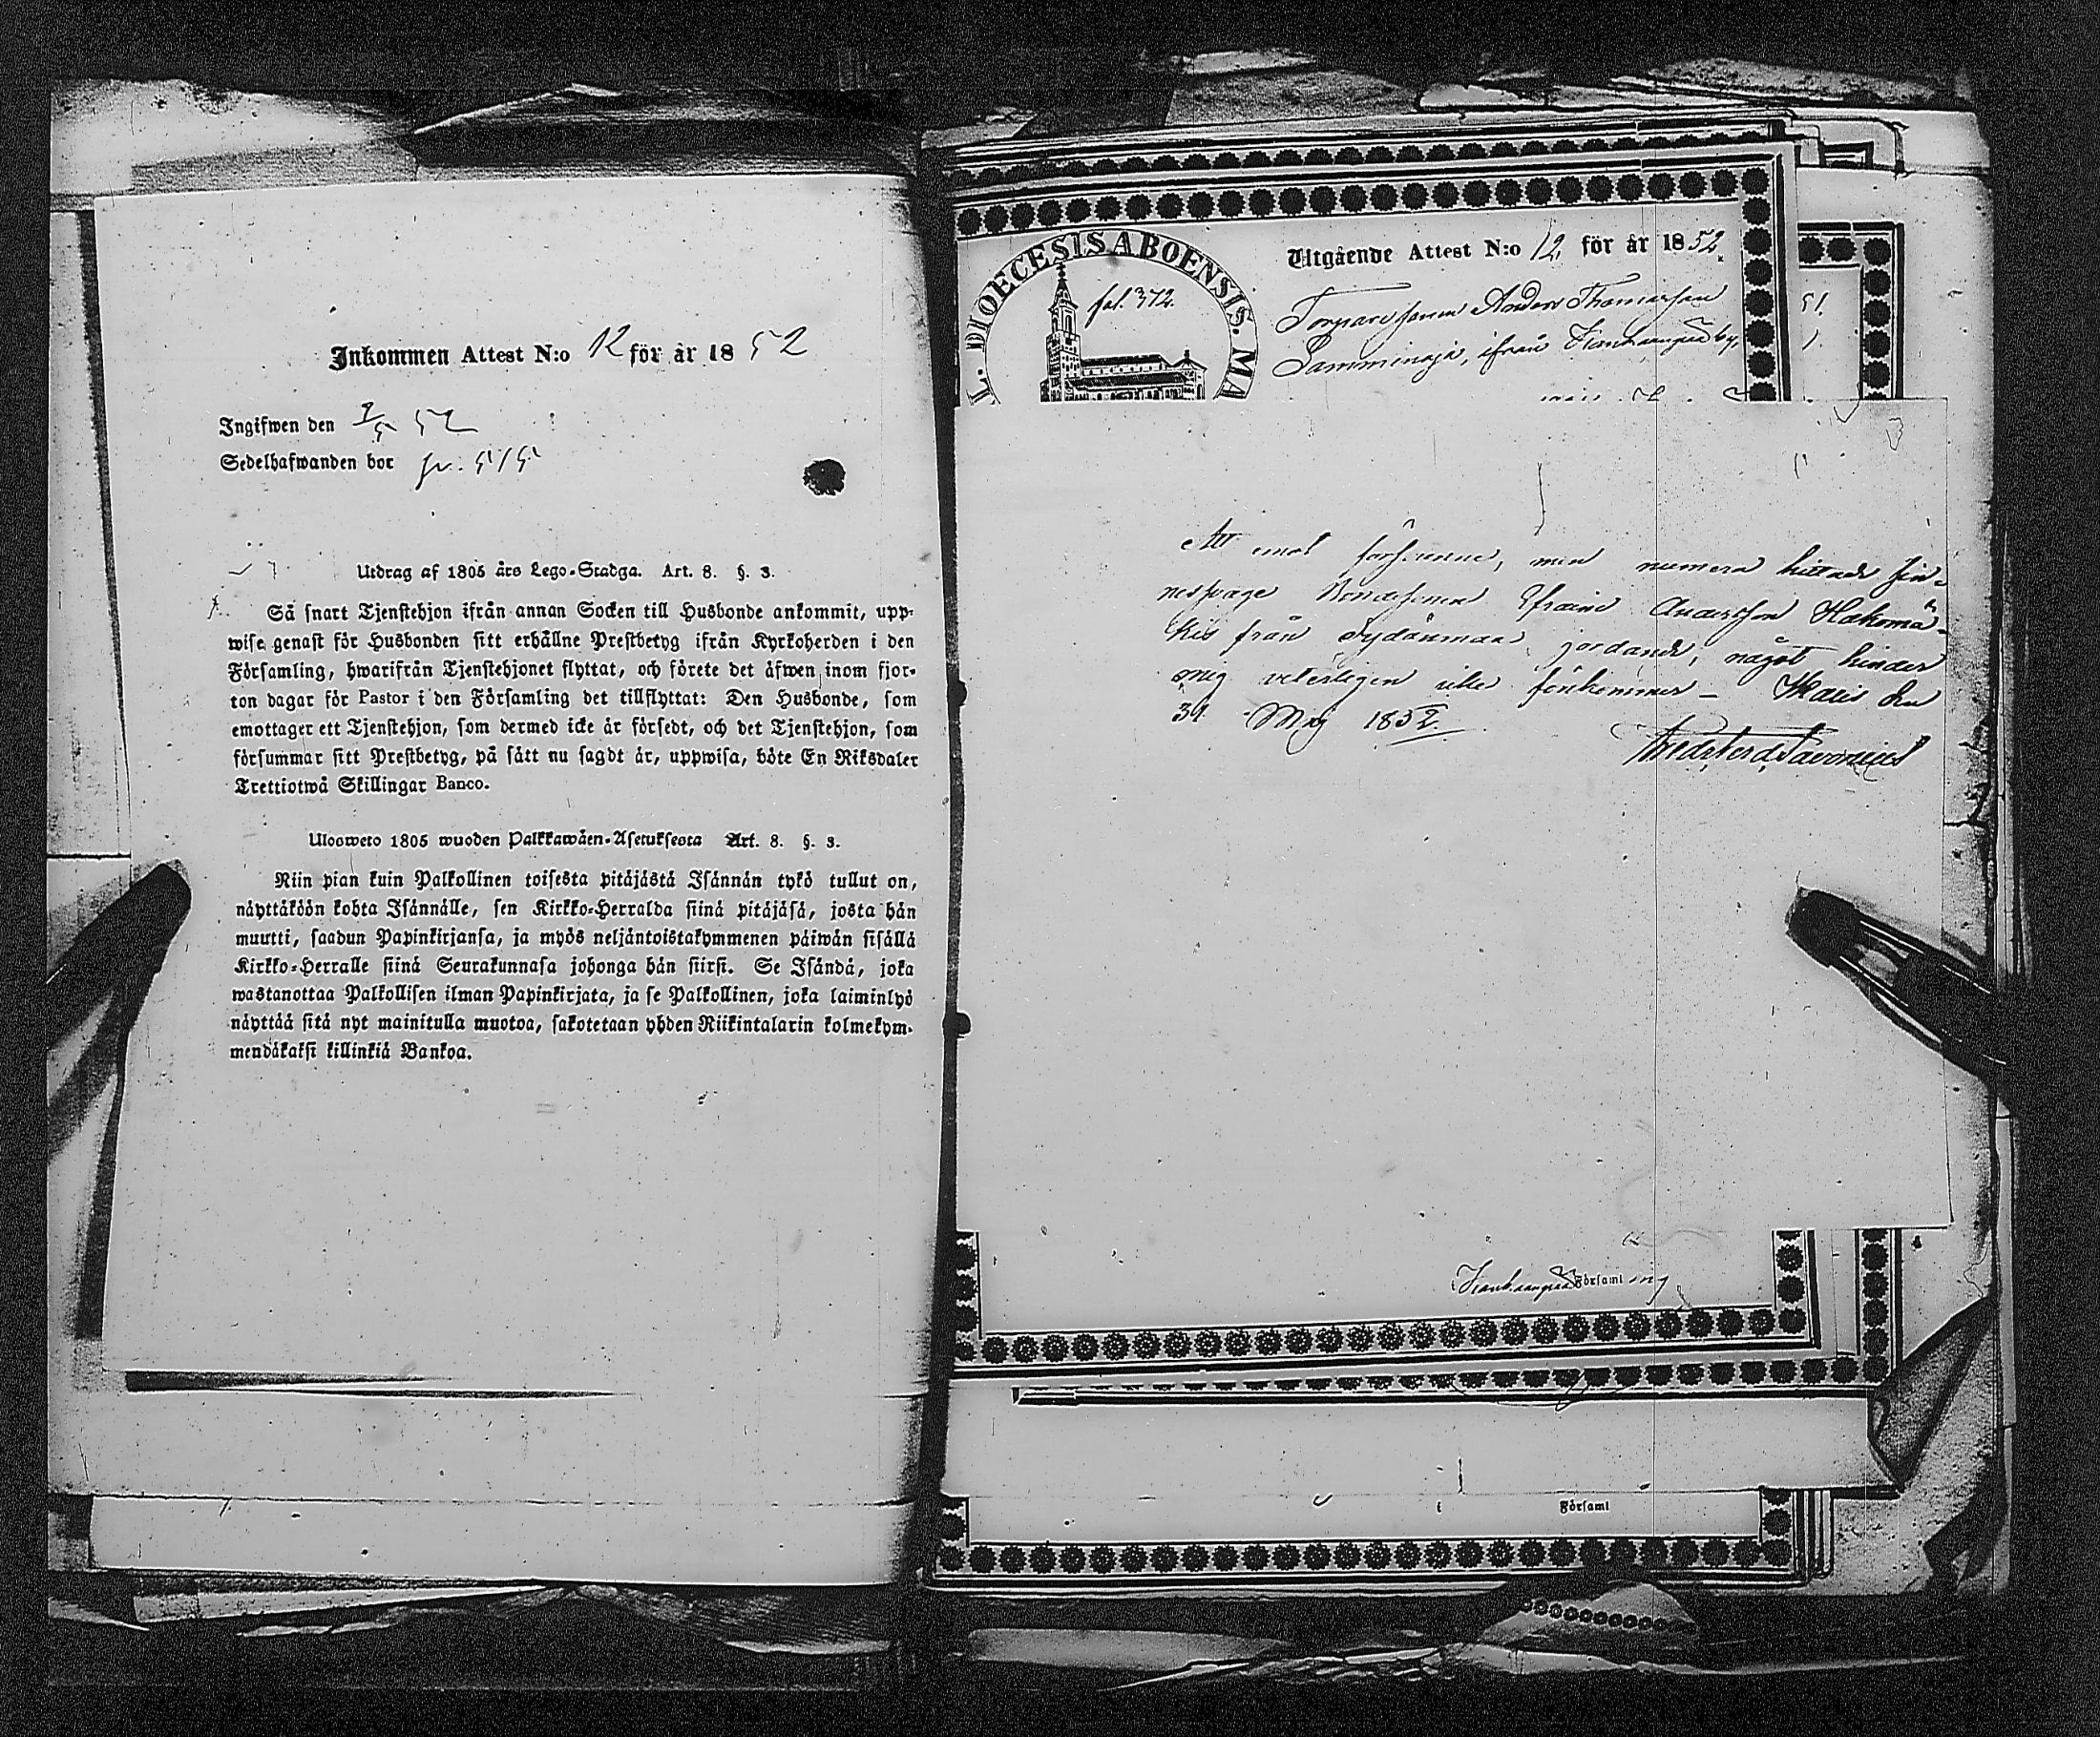 Inkommen Attest N:o 12 för år 1852
Ingifwen den 2/5 52
Sedelhafwanden bor fr. 515
Utdrag af 1805 års Lego-Stadga. Art. 8. §. 3.
Så snart Tjenstehjon ifrån annan Socken till Husbonde ankommit, upp-
wise genast för Husbonden sitt erhållne Prestbetyg ifrån Kyrkoherden i den
Församling, hwarifrån Tjenstehjonet flyttat, och förete det äfwen inom fjor-
ton dagar för Pastor i den Församling det tillflyttat: Den Husbonde, som
emottager ett Tjenstehjon, som dermed icke är försedt, och det Tjenstehjon, som
försummar sitt Prestbetyg, på sätt nu sagdt är, uppwisa, böte En Riksdaler
Trettiotwå Skillingar Banco.
Ulosweto 1805 wuoden Palkkawäen-Asetuksesta Art. 8. §. 3.
Niin pian kuin Palkollinen toisesta pitäjästä Isännän tykö tullut on,
näyttäköön kohta Isännälle, sen Kirkko-Herralda siinä pitäjäsä, josta hän
muutti, saadun Papinkirjansa, ja myös neljäntoistakymmenen päiwän sisällä
Kirkko-Herralle siinä Seurakunnasa johonga hän siirsi. Se Isändä, joka
wastanottaa Palkollisen ilman Papinkirjata, ja se Palkollinen, joka laiminlyö
näyttää sitä nyt mainitulla muotoa, sakotetaan yhden Riikintalarin kolmekym-
mendäkaksi killinkiä Bankoa.
L. DIOECESIS ABOENSIS. MA
fol. 372.
Utgående Attest N:o 12 för år 1852.
Torpare sonen Anders Thomasson
Lamminoja, ifrån Kankaanpää by,
51.
Att emot förstnämnde, men numera
Bondesonen Efraim Andersson Hakomä-
kis från Sydänmaa, något hinder
mig veterligen icke förekommer – Maris den
31 Maj 1852.
Kankaanpää Församling
i Församl